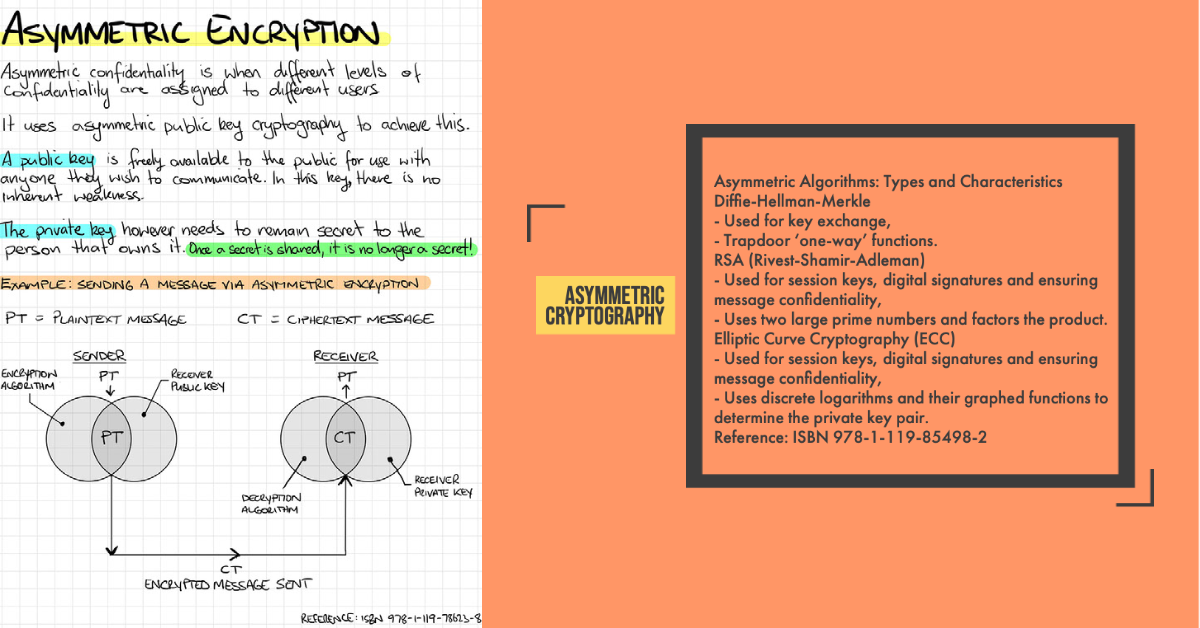 ASYMMETRIC ENCRYPTION
Asymmetric confidentiality is when different levels of
confidentiality are assigned to different users
It uses asymmetric public key cryptography to achieve this.
A public key is freely available to the public for use with
anyone they wish to communicate. In this key, there is no
inherent weakness.
The private key however needs to remain secret to the
person that owns it. Once a secret is shared, it is no longer a secret!
EXAMPLE: SENDING A MESSAGE VIA ASYMMETRIC ENCRYPTION
PT = PLAINTEXT MESSAGE CT = CIPHERTEXT MESSAGE
SENDER
ENCRYPTION
ALGORITHM
PT
RECEIVER
PUBLIC KEY
PT
RECEIVER
PT
CT
DECRYPTION
ALGORITHM
RECEIVER
PRIVATE KEY
CT
ENCRYPTED MESSAGE SENT
REFERENCE: ISBN 978-1-119-78623-8
ASYMMETRIC
CRYPTOGRAPHY
Asymmetric Algorithms: Types and Characteristics
Diffie-Hellman-Merkle
- Used for key exchange,
- Trapdoor ‘one-way’ functions.
RSA (Rivest-Shamir-Adleman)
- Used for session keys, digital signatures and ensuring
message confidentiality,
- Uses two large prime numbers and factors the product.
Elliptic Curve Cryptography (ECC)
- Used for session keys, digital signatures and ensuring
message confidentiality,
- Uses discrete logarithms and their graphed functions to
determine the private key pair.
Reference: ISBN 978-1-119-85498-2